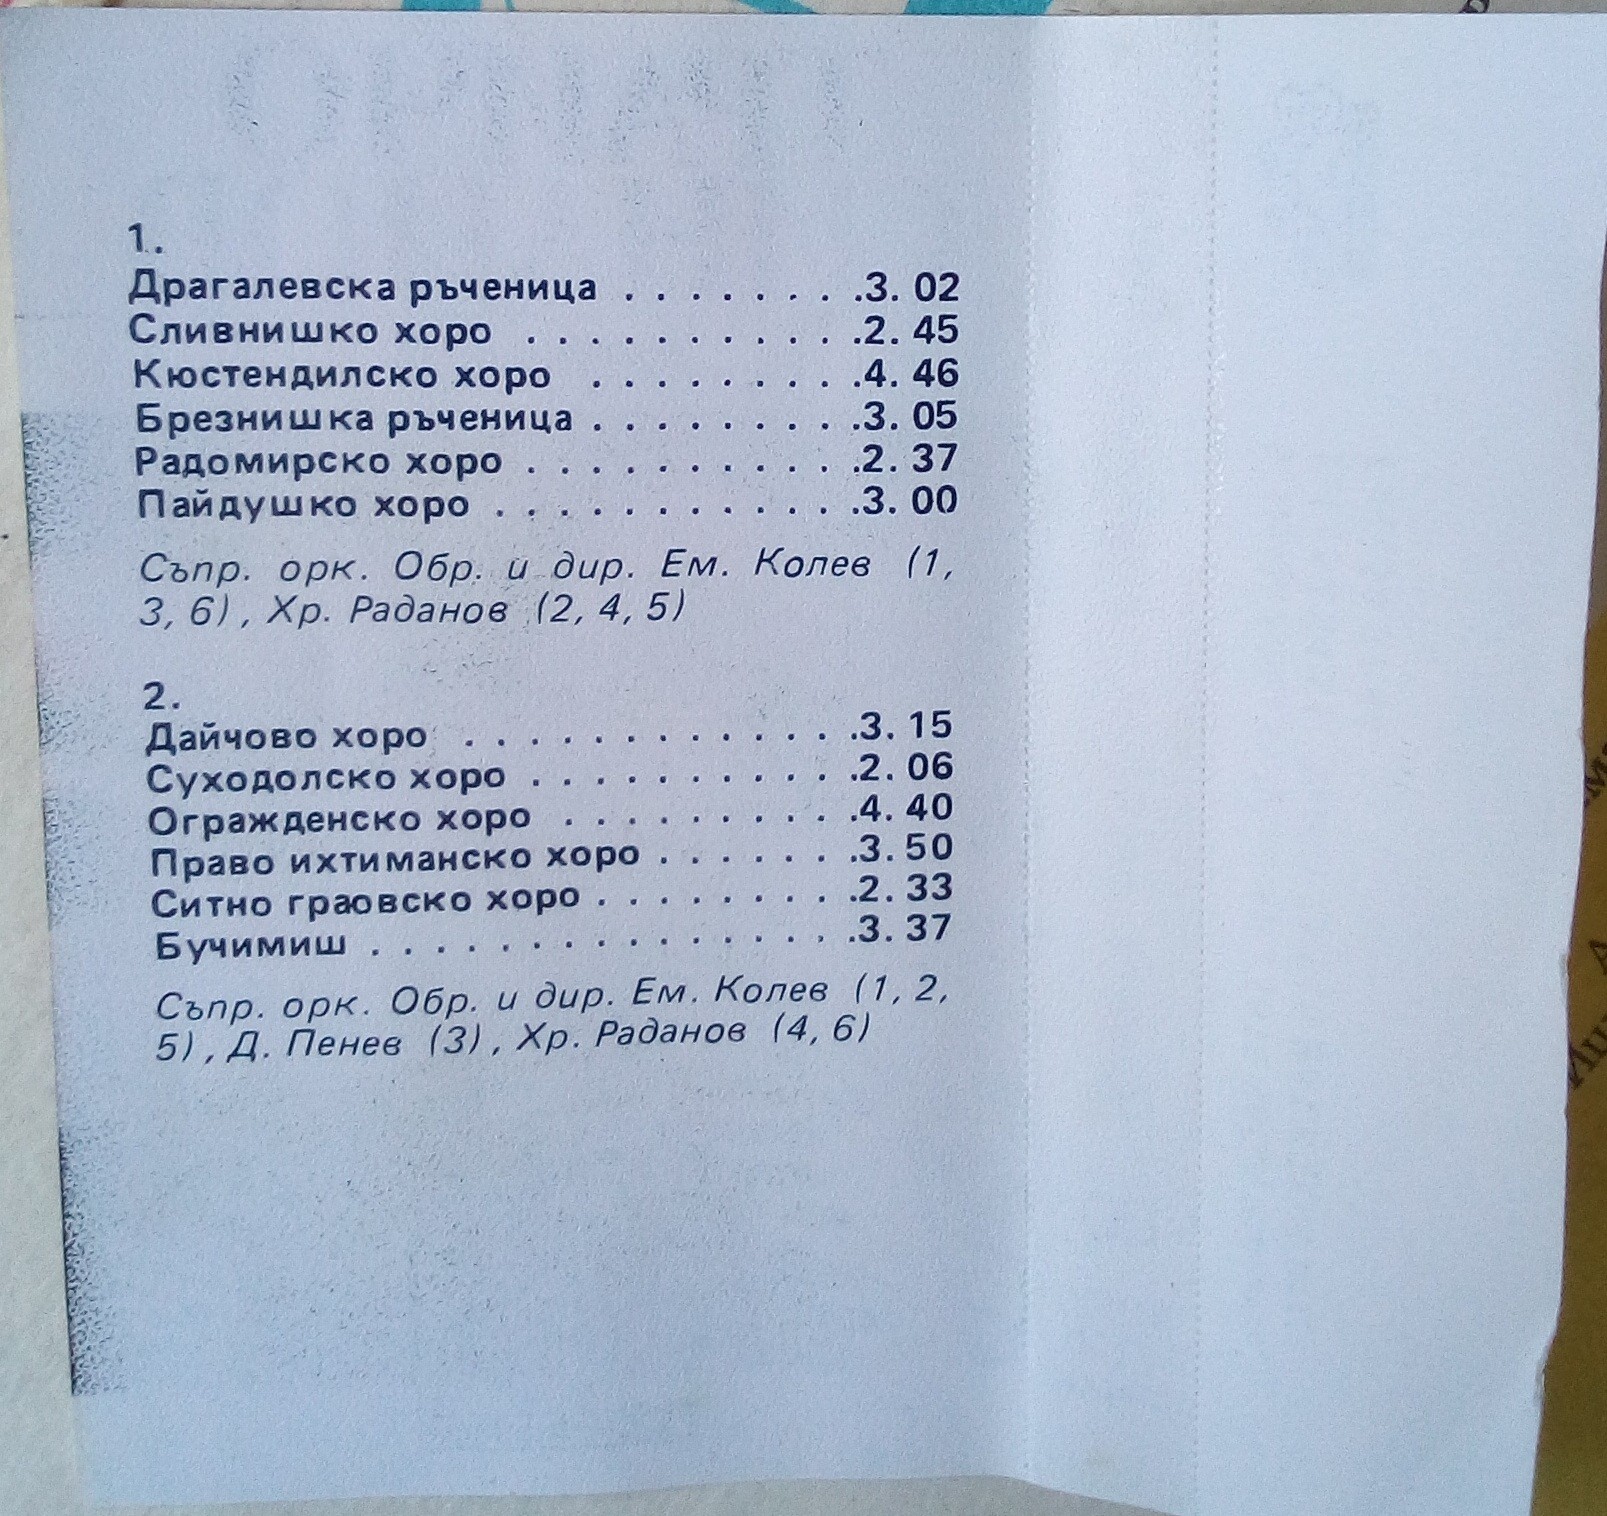 1.
Драгалевска ръченица . . . . . . . .3. 02
Сливнишко хоро . . . . . . . . . . .2. 45
Кюстендилско хоро . . . . . . . . .4. 46
Брезнишка ръченица . . . . . . . . .3. 05
Радомирско хоро . . . . . . . . . . .2. 37
Пайдушко хоро . . . . . . . . . . . .3. 00
Съпр. орк. Обр. и дир. Ем. Колев (1,
3, 6) , Хр. Раданов (2, 4, 5)
2.
Дайчово хоро . . . . . . . . . . . . .3. 15
Суходолско хоро . . . . . . . . . . .2. 06
Огражденско хоро . . . . . . . . . .4. 40
Право ихтиманско хоро . . . . . . .3. 50
Ситно граовско хоро . . . . . . . . .2. 33
Бучимиш . . . . . . . . . . . . . . . .3. 37
Съпр. орк. Обр. и дир. Ем. Колев (1, 2,
5) , Д. Пенев (3) , Хр. Раданов (4, 6)